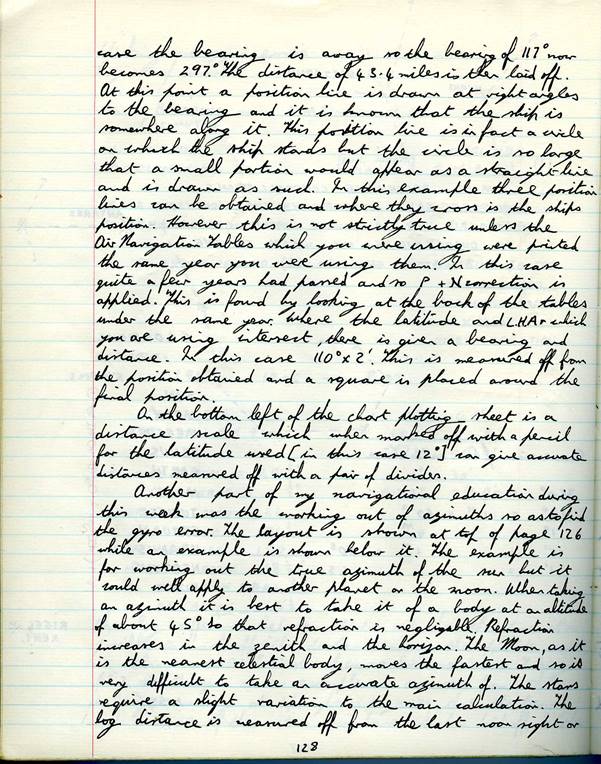 case the bearing is away so the bearing of 117° now
becomes 297°. The distance of 43.4 miles is then laid off.
At this point a position line is drawn at right angles
to the bearing and it is known that the ship is
somewhere along it. This position line is in fact a circle
on which the ship stands but the circle is so large
that a small portion would appear as a straight line
and is drawn as such. In this example three position
lines can be obtained and where they cross is the ships
position. However this is not strictly true unless the
Air Navigation Tables which you were using were printed
the same year you were using them. In this case
quite a few years had passed and so P + N correction is
applied. This is found by looking at the back of the tables
under the same year. Where the latitude and L.H.A ♈ which
you are using intersect, there is given a bearing and
distance. In this case 110° x 2'. This is measured off from
the position obtained and a square is placed around the
final position.
On the bottom left of the chart plotting sheet is a
distance scale which when marked off with a pencil
for the latitude used [in this case 12°] can give accurate
distances measured off with a pair of dividers.
Another part of my navigational education during
this week was the working out of azimuths so as to find
the gyro error. The layout is shown at top of page 126
while an example is shown below it. The example is
for working out the true azimuth of the sun but it
could well apply to another planet or the moon. When taking
an azimuth it is best to take it of a body at an altitude
of about 45° so that refraction is negligible. Refraction
increases in the zenith and the horizon. The Moon, as it
is the nearest celestial body, moves the fastest and so is
very difficult to take an accurate azimuth of. The stars
require a slight variation to the main calculation. The
log distance is measured off from the last noon sight or
128